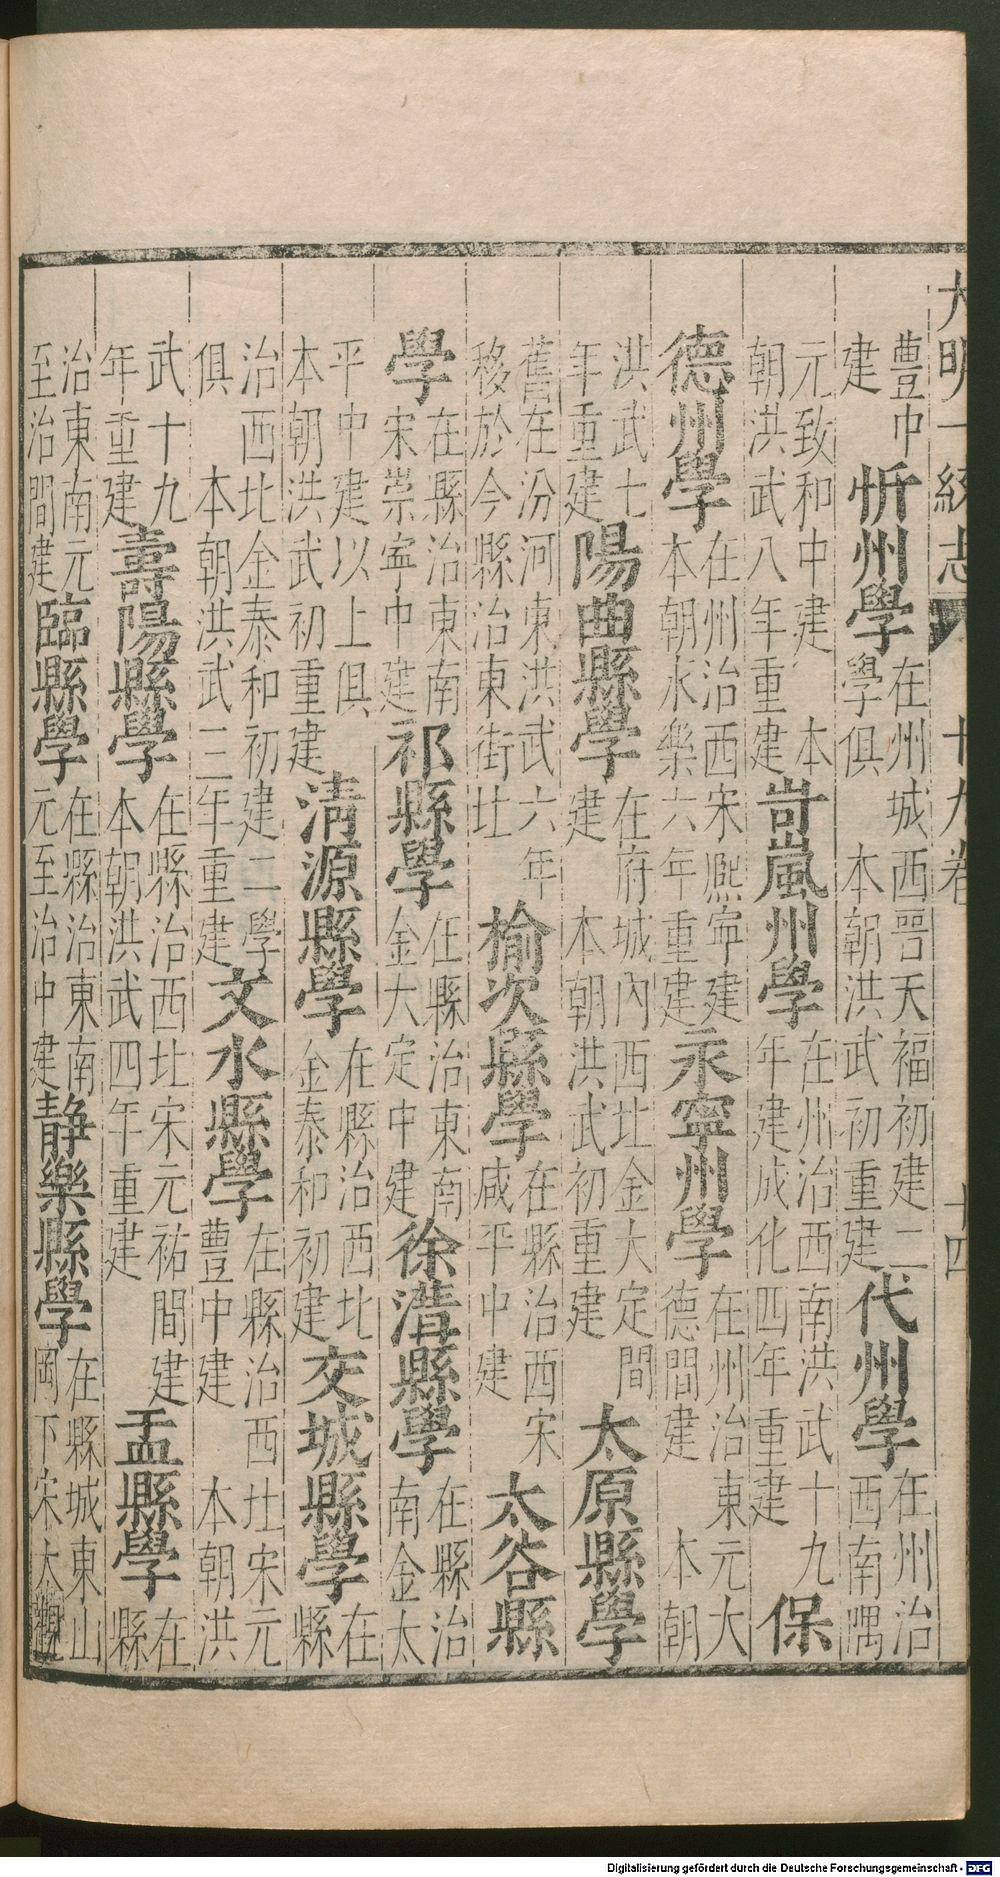 大明一統志 十九卷 十四
豊中建 忻州學 在州城西晉天福初建二學俱 本朝洪武初重建 代州學 在州治西南隅
元致和中建 本朝洪武八年重建 岢嵐州學 在州治西南洪武十九年建成化四年重建 保
德州學 在州治西宋熈寧建 本朝永樂六年重建 永寧州學 在州治東元大德間建 本朝
洪武七年重建 陽曲縣學 在府城內西北金大定間建 本朝洪武初重建 太原縣學
舊在汾河東洪武六年移於今縣治東街北 榆次縣學 在縣治西宋咸平中建 太谷縣
學 在縣治東南宋崇寧中建 祁縣學 在縣治東南金大定中建 徐溝縣學 在縣治南金太
平中建以上俱 本朝洪武初重建 清源縣學 在縣治西北金泰和初建 交城縣學 在縣
治西北金泰和初建二學俱 本朝洪武三年重建 文水縣學 在縣治西北宋元豊中建 本朝洪
武十九年重建 壽陽縣學 在縣治西北宋元祐間建 本朝洪武四年重建 盂縣學 在縣
治東南元至治間建 臨縣學 在縣治東南元至治中建 靜樂縣學 在縣城東山岡下宋大觀
Digitalisierung gefördert durch die Deutsche Forschungsgemeinschaft - DFG